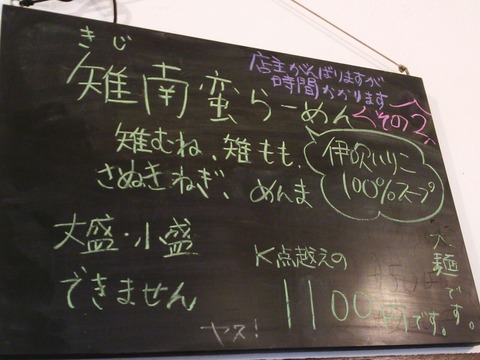 きじ
雉南蛮らーめん
店主がんばりますが
時間かかります
<その2>
雉むね、雉もも、
さぬきねぎ、めんま
伊吹いりこ
100%スープ
大盛・小盛
できません
K点越えの
1100円です。
麺です。
ヤス!